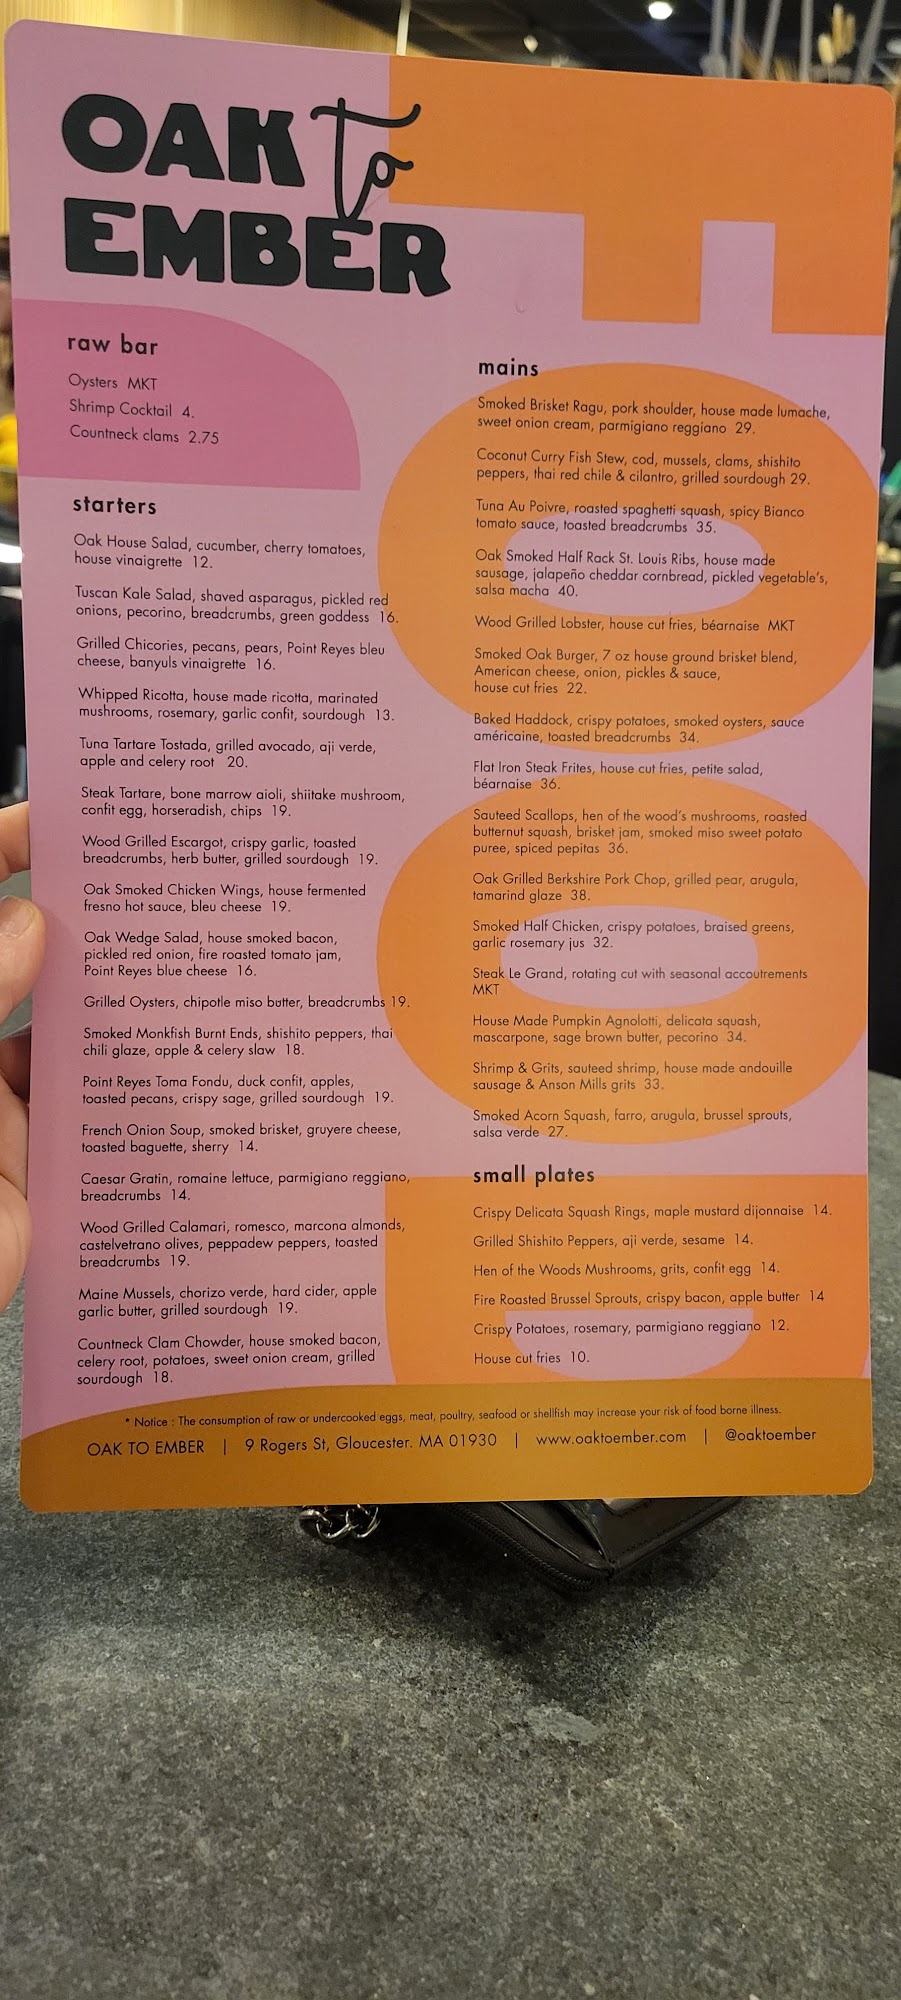 OAK to
EMBER
raw bar
Oysters MKT
Shrimp Cocktail 4.
Countneck clams 2.75
starters
Oak House Salad, cucumber, cherry tomatoes,
house vinaigrette 12.
Tuscan Kale Salad, shaved asparagus, pickled red
onions, pecorino, breadcrumbs, green goddess 16.
Grilled Chicories, pecans, pears, Point Reyes bleu
cheese, banyuls vinaigrette 16.
Whipped Ricotta, house made ricotta, marinated
mushrooms, rosemary, garlic confit, sourdough 13.
Tuna Tartare Tostada, grilled avocado, aji verde,
apple and celery root 20.
Steak Tartare, bone marrow aioli, shiitake mushroom,
confit egg, horseradish, chips 19.
Wood Grilled Escargot, crispy garlic, toasted
breadcrumbs, herb butter, grilled sourdough 19.
Oak Smoked Chicken Wings, house fermented
fresno hot sauce, bleu cheese 19.
Oak Wedge Salad, house smoked bacon,
pickled red onion, fire roasted tomato jam,
Point Reyes blue cheese 16.
Grilled Oysters, chipotle miso butter, breadcrumbs 19.
Smoked Monkfish Burnt Ends, shishito peppers, thai
chili glaze, apple & celery slaw 18.
Point Reyes Toma Fondu, duck confit, apples,
toasted pecans, crispy sage, grilled sourdough 19.
French Onion Soup, smoked brisket, gruyere cheese,
toasted baguette, sherry 14.
Caesar Gratin, romaine lettuce, parmigiano reggiano,
breadcrumbs 14.
Wood Grilled Calamari, romesco, marcona almonds,
castelvetrano olives, peppadew peppers, toasted
breadcrumbs 19.
Maine Mussels, chorizo verde, hard cider, apple
garlic butter, grilled sourdough 19.
Countneck Clam Chowder, house smoked bacon,
celery root, potatoes, sweet onion cream, grilled
sourdough 18.
mains
Smoked Brisket Ragu, pork shoulder, house made lumache,
sweet onion cream, parmigiano reggiano 29.
Coconut Curry Fish Stew, cod, mussels, clams, shishito
peppers, thai red chile & cilantro, grilled sourdough 29.
Tuna Au Poivre, roasted spaghetti squash, spicy Bianco
tomato sauce, toasted breadcrumbs 35.
Oak Smoked Half Rack St. Louis Ribs, house made
sausage, jalapeño cheddar cornbread, pickled vegetable's,
salsa macha 40.
Wood Grilled Lobster, house cut fries, béarnaise MKT
Smoked Oak Burger, 7 oz house ground brisket blend,
American cheese, onion, pickles & sauce,
house cut fries 22.
Baked Haddock, crispy potatoes, smoked oysters, sauce
américaine, toasted breadcrumbs 34.
Flat Iron Steak Frites, house cut fries, petite salad,
béarnaise 36.
Sauteed Scallops, hen of the wood's mushrooms, roasted
butternut squash, brisket jam, smoked miso sweet potato
puree, spiced pepitas 36.
Oak Grilled Berkshire Pork Chop, grilled pear, arugula,
tamarind glaze 38.
Smoked Half Chicken, crispy potatoes, braised greens,
garlic rosemary jus 32.
Steak Le Grand, rotating cut with seasonal accoutrements
MKT
House Made Pumpkin Agnolotti, delicata squash,
mascarpone, sage brown butter, pecorino 34.
Shrimp & Grits, sauteed shrimp, house made andouille
sausage & Anson Mills grits 33.
Smoked Acorn Squash, farro, arugula, brussel sprouts,
salsa verde 27.
small plates
Crispy Delicata Squash Rings, maple mustard dijonnaise 14.
Grilled Shishito Peppers, aji verde, sesame 14.
Hen of the Woods Mushrooms, grits, confit egg 14.
Fire Roasted Brussel Sprouts, crispy bacon, apple butter 14
Crispy Potatoes, rosemary, parmigiano reggiano 12.
House cut fries 10.
* Notice : The consumption of raw or undercooked eggs, meat, poultry, seafood or shellfish may increase your risk of food borne illness.
OAK TO EMBER | 9 Rogers St, Gloucester. MA 01930 | www.oaktoember.com | @oaktoember